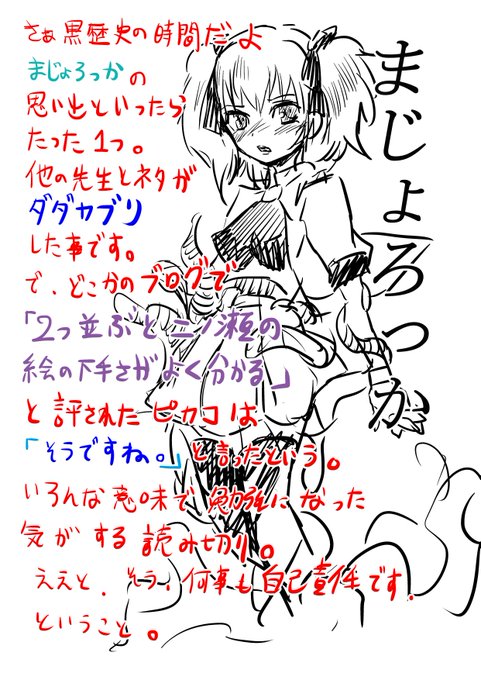 まじょろっか
さぁ黒歴史の時間だよ
まじょろっかの
思い出といったら
たった1つ。
他の先生とネタが
ダダカブリ
した事です。
で、どこかのブログで
「2つ並ぶと二ノ瀬の
絵の下手さがよく分かる」
と評されたピカコは
「そうですね。」と言ったという。
いろんな意味で勉強になった
気がする読み切り。
ええと、そう、何事も自己責任です.
ということ。